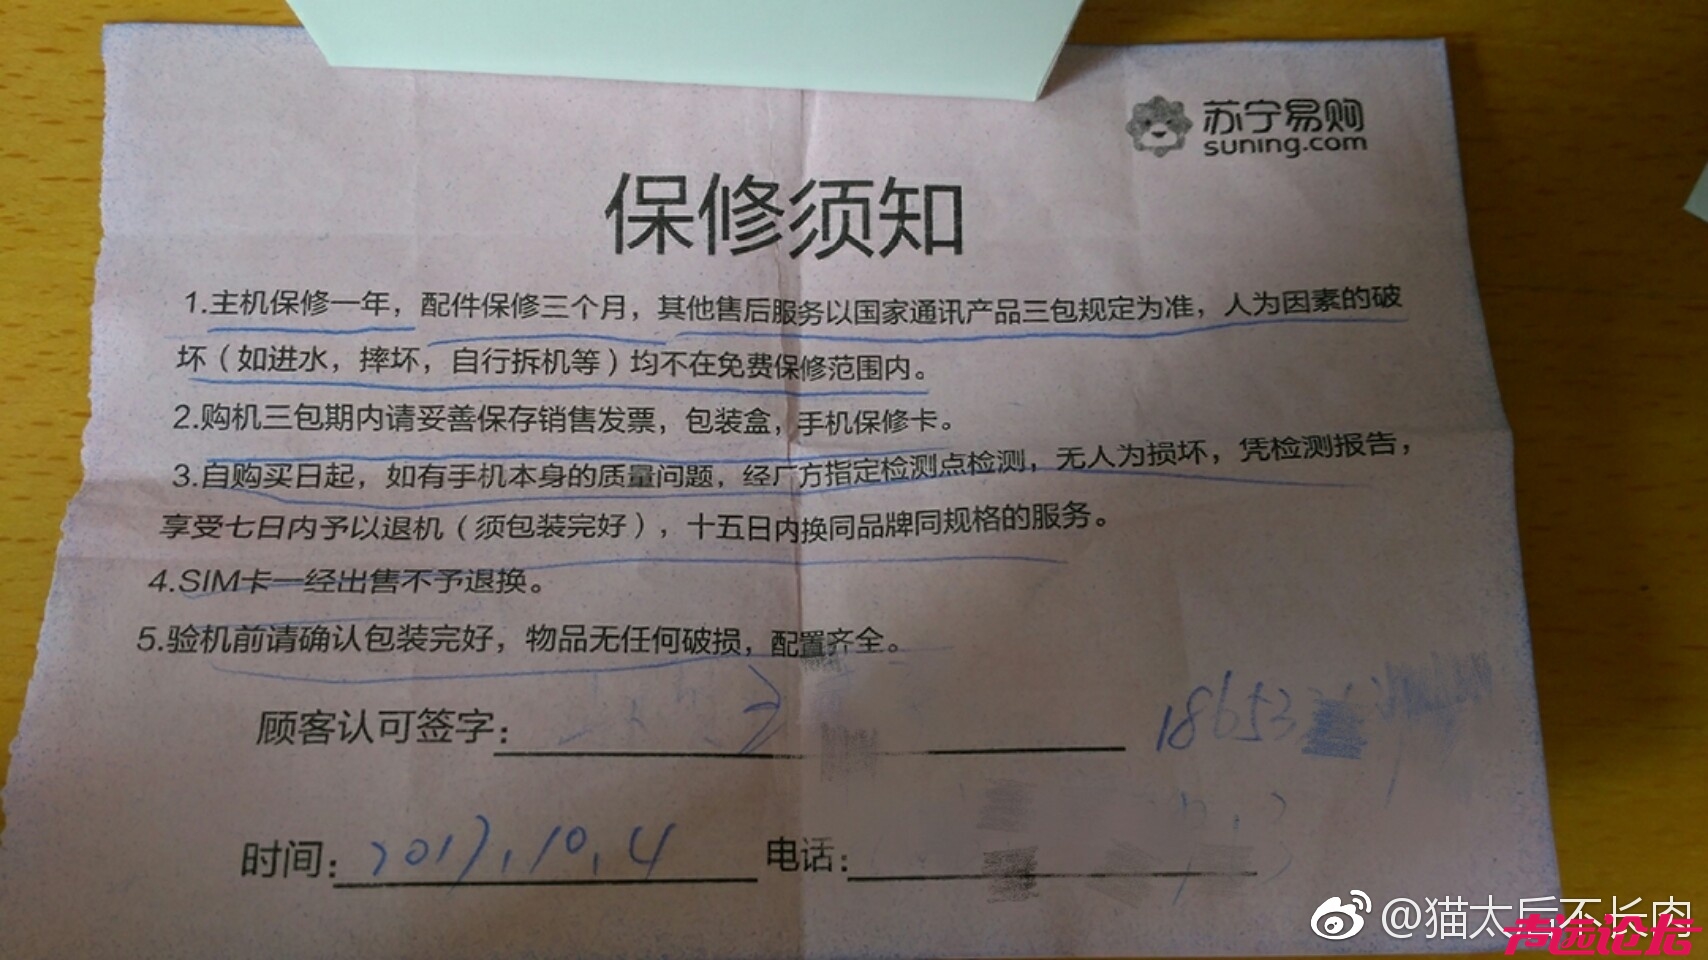 苏宁易购
suning.com
保修须知
1.主机保修一年，配件保修三个月，其他售后服务以国家通讯产品三包规定为准，人为因素的破
坏（如进水，摔坏，自行拆机等）均不在免费保修范围内。
2.购机三包期内请妥善保存销售发票，包装盒，手机保修卡。
3.自购买日起，如有手机本身的质量问题，经厂方指定检测点检测，无人为损坏，凭检测报告，
享受七日内予以退机（须包装完好），十五日内换同品牌同规格的服务。
4.SIM卡一经出售不予退换。
5.验机前请确认包装完好，物品无任何破损，配置齐全。
顾客认可签字：
18653
时间：2017.10.4 电话：
@猫太后不长肉